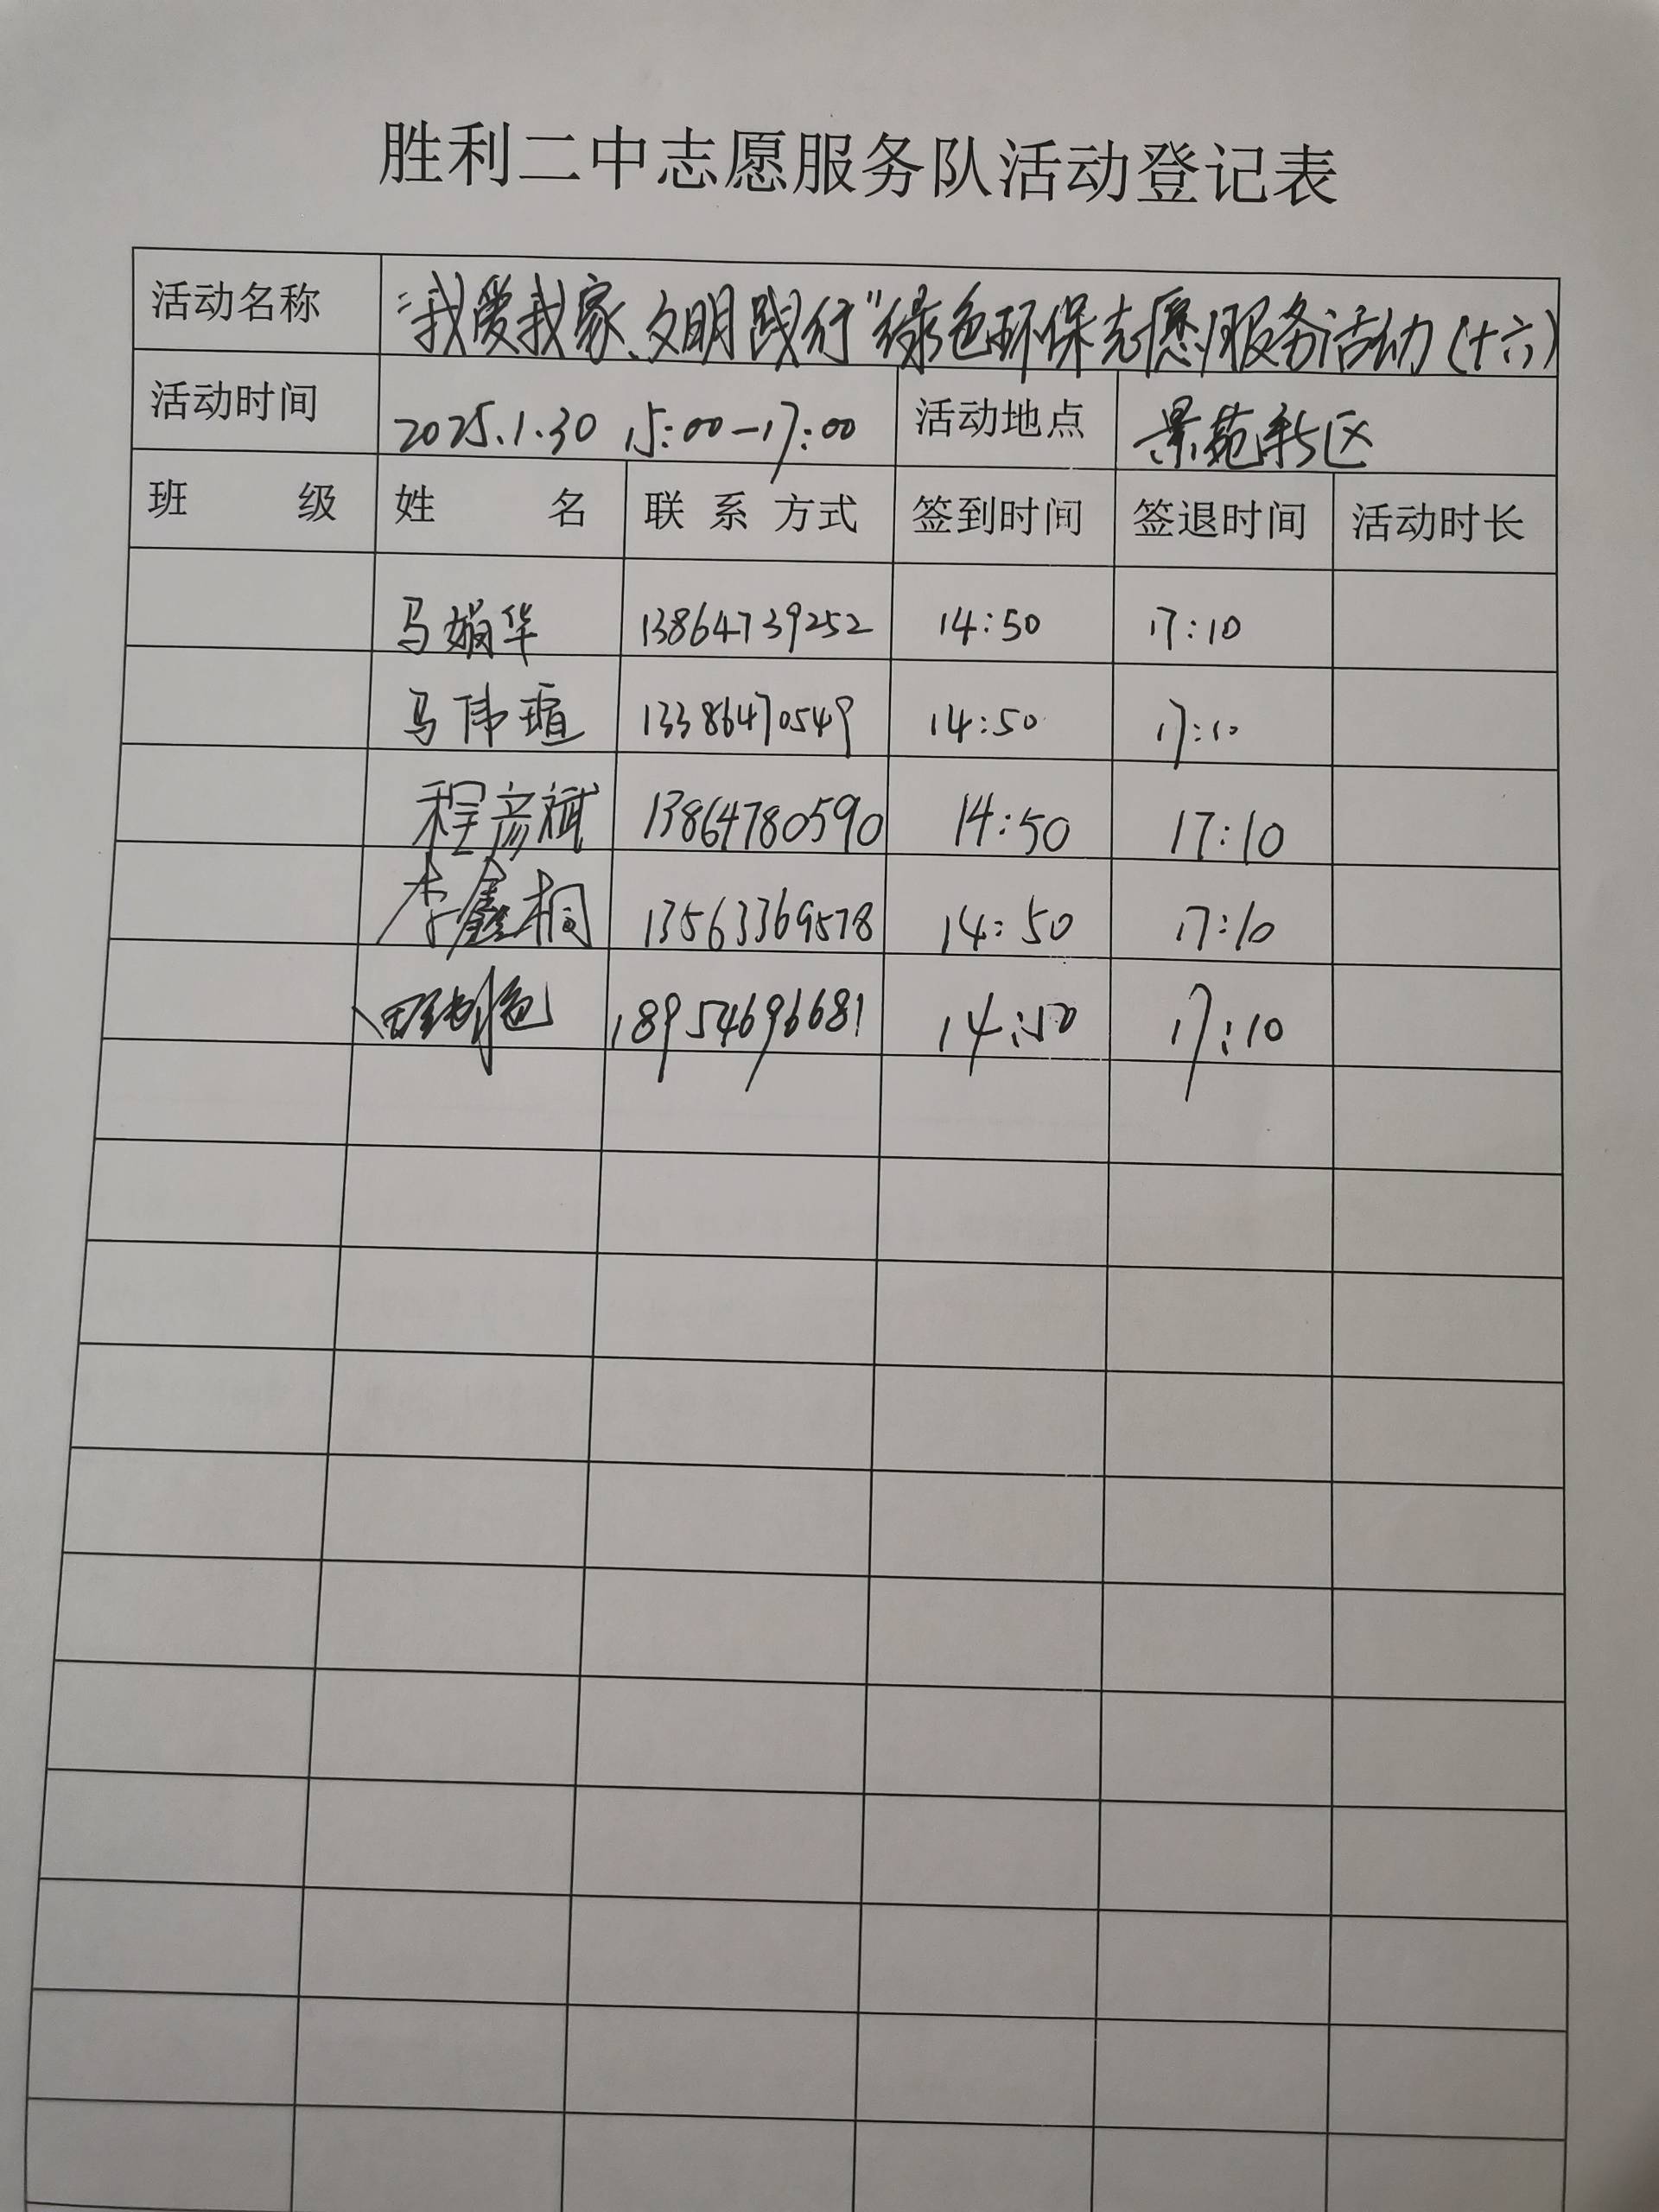 胜利二中志愿服务队活动登记表
活动名称 “我爱我家、文明践行”绿色环保志愿服务活动(十六)
活动时间 2025.1.30 15:00-17:00 活动地点 景苑新区
班 级 姓 名 联 系 方式 签到时间 签退时间 活动时长
马娟华 13864739252 14:50 17:10
马伟瑄 13386470549 14:50 17:10
程彦斌 13864780590 14:50 17:10
李鑫桐 13563369578 14:50 17:10
18954696681 14:50 17:10